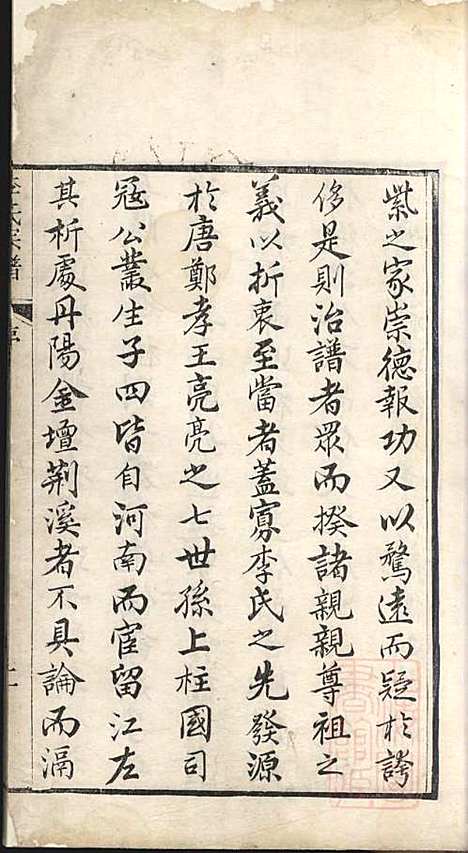 紫之家崇德報功又以騖遠而疑於誇
侈是則治譜者眾而揆諸親親尊祖之
義以折衷至當者蓋寡李氏之先發源
於唐鄭孝王亮亮之七世孫上柱國司
冦公叢生子四皆自河南而宦留江左
其析處丹陽金壇荊溪者不具論而滆
李氏宗譜